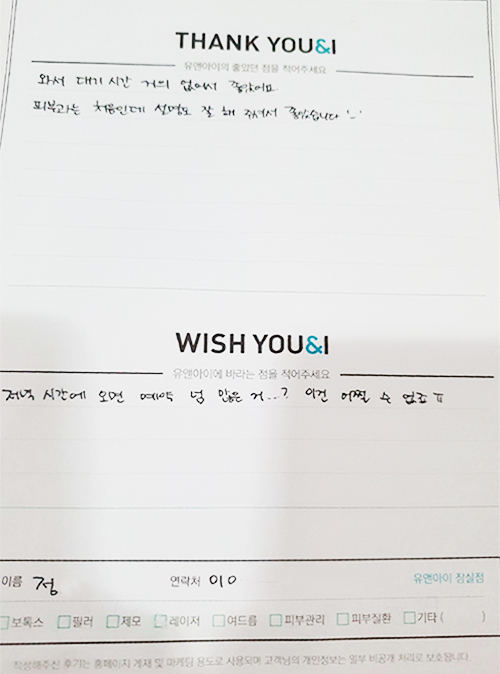 THANK YOU&I
유앤아이의 좋았던 점을 적어주세요
와서 대기 시간 거의 없어서 좋았어요
피부과는 처음인데 설명도 잘 해 주셔서 좋았습니다 '-'
WISH YOU&I
유앤아이에 바라는 점을 적어주세요
저녁 시간에 오면 예약 넘 많은 거..? 이건 어쩔 수 없죠 ㅠ
이름 정 연락처 010 유앤아이 잠실점
보톡스 필러 제모 레이저 여드름 피부관리 피부질환 기타 ( )
작성해주신 후기는 홈페이지 게재 및 마케팅 용도로 사용되며 고객님의 개인정보는 일부 비공개 처리로 보호됩니다.